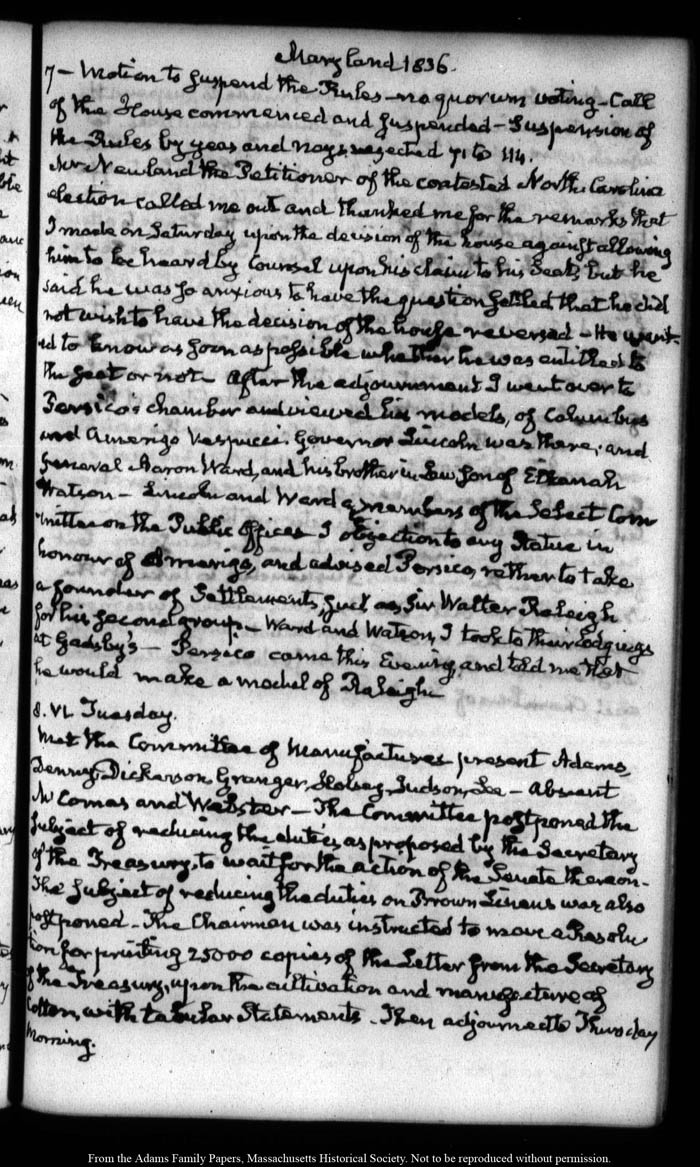 Maryland 1836.
7 – Motion to suspend the Rules – no quorum voting – Call
of the House commenced and suspended – Suspension of
the Rules by yeas and nays rejected 71 to 114.
Mr Newland the Petitioner of the contested North Carolina
election called me out and thanked me for the remarks that
I made on Saturday upon the decision of the house against allowing
him to be heard by Counsel upon his claim to his Seat, but he
said he was so anxious to have the question settled that he did
not wish to have the decision of the house reversed – He want-
ed to know as soon as possible whether he was entitled to
the seat or not – After the adjournment I went over to
Persico's chamber and viewed his models, of Columbus
and Amerigo Vespucci. Governor Lincoln was there, and
General Aaron Ward, and his brother in Law Son of Elkanah
Watson – Lincoln and Ward members of the Select Com
mittee on the Public Offices I objection to any Statue in
honour of Amerigo, and advised Persico, rather to take
a founder of Settlements, such as, Sir Walter Raleigh
for his second group. – Ward and Watson, I took to their lodgings
at Gadsby's – Persico came this Evening, and told me that
he would make a model of Raleigh
8. VI. Tuesday.
Met the Committee of Manufactures present Adams,
Denny, Dickerson, Granger, Halsey, Judson, Lee – Absent
McComas and Webster – The Committee postponed the
subject of reducing the duties, as proposed by the Secretary
of the Treasury, to wait for the action of the Senate thereon –
The subject of reducing the duties on Brown Linens was also
postponed – The Chairman was instructed to move a Resolu
tion for printing 25000 copies of the Letter from the Secretary
of the Treasury, upon the cultivation and manufacture of
Cotton, with tabular Statements. Then adjourned to Thursday
morning.
From the Adams Family Papers, Massachusetts Historical Society. Not to be reproduced without permission.